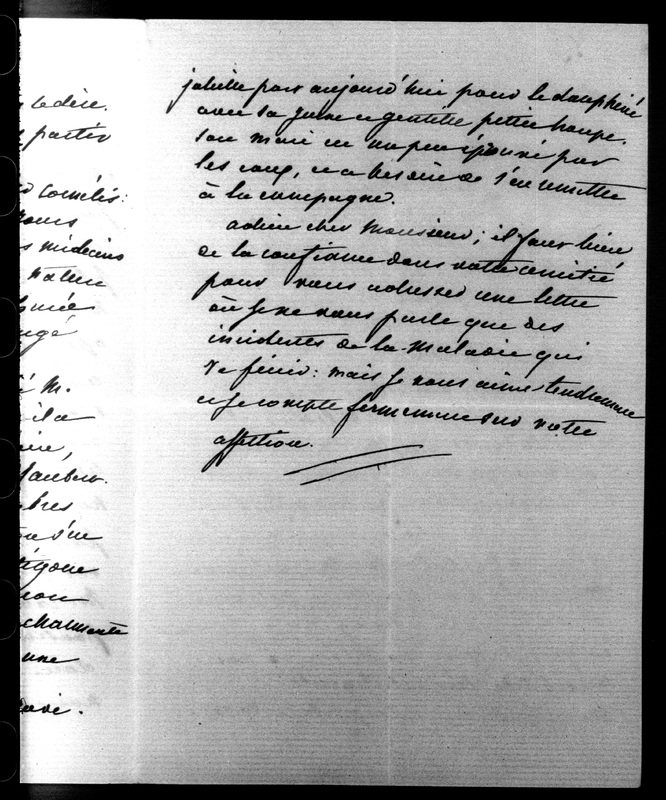 à dire.
partir
cornélis:
jours
médecins
nature
M.
il a
bres
s'en
charmante
une
juliette part aujourd'hui pour le dauphiné
avec sa jeune et gentille petite troupe.
son mari est un peu éprouvé par
les eaux, et a besoin de s'en remettre
à la campagne.
adieu cher Monsieur; il faut bien
de la confiance dans votre amitié
pour vous adresser une lettre
où je ne vous parle que des
incidents de la maladie qui
va finir: mais je vous aime tendrement
et je compte fermement sur votre
affection.